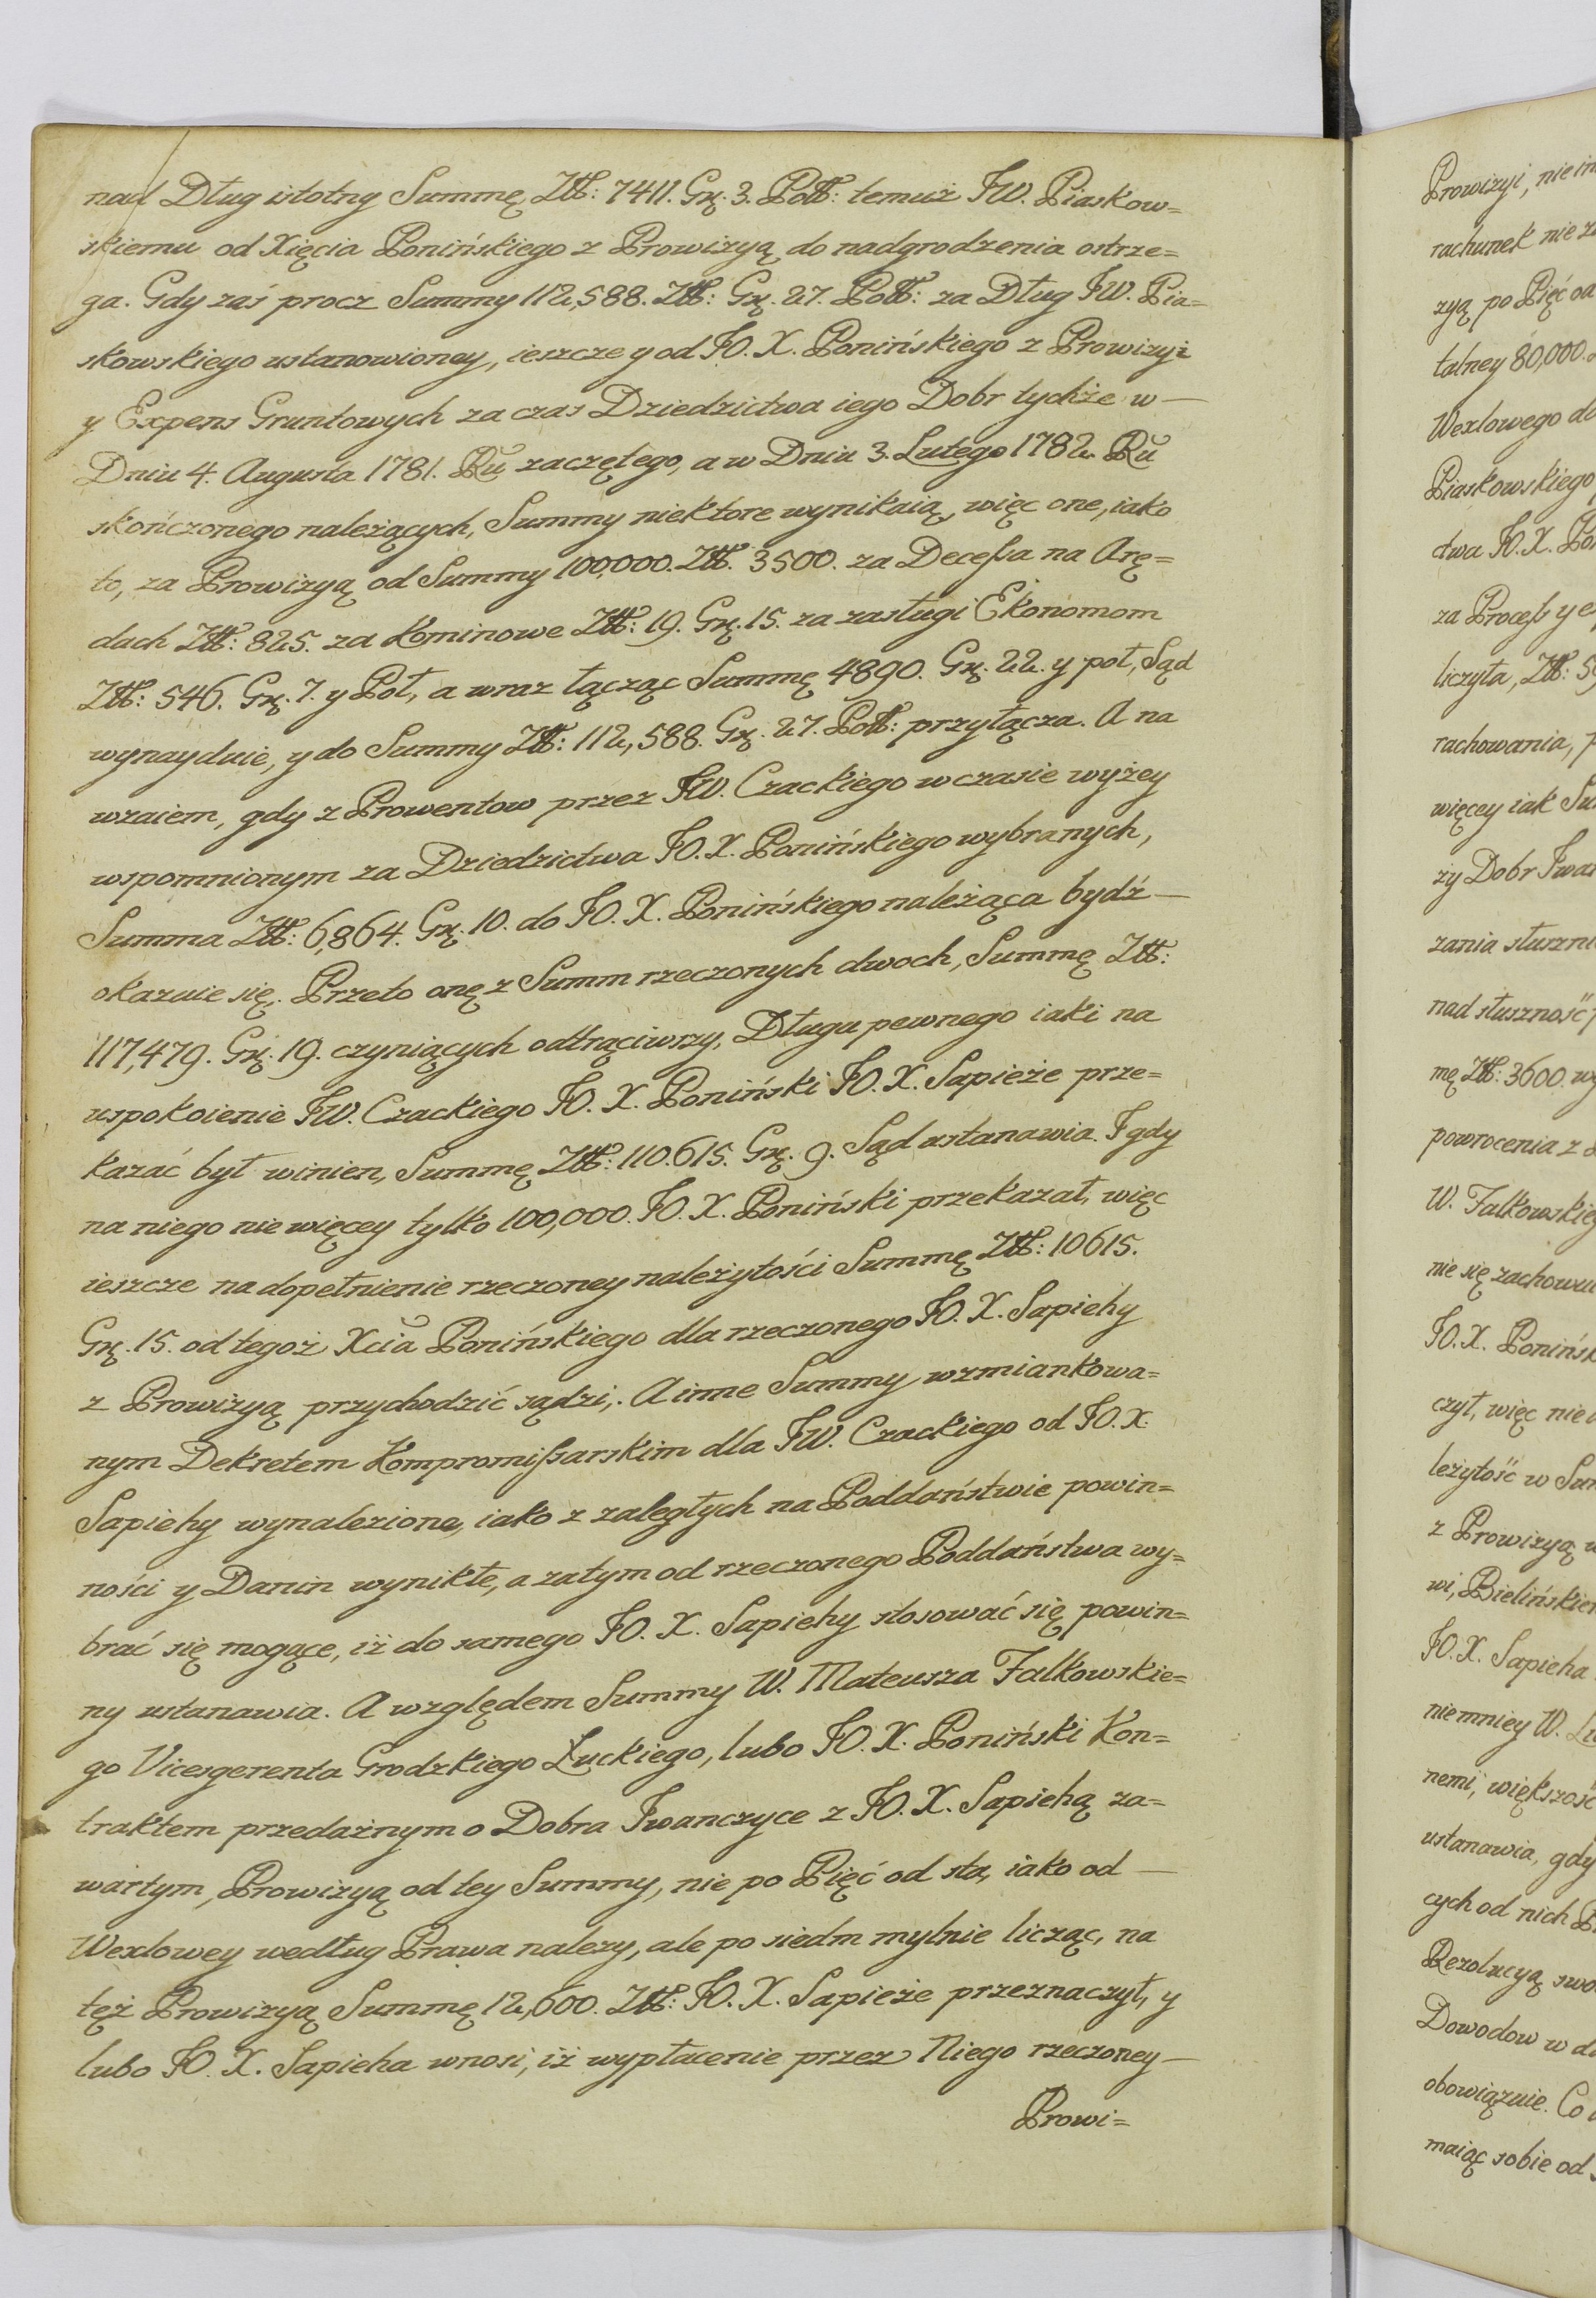 nad Dług istotny Summę Złł: 7411. Grę. 3. Połł: temuż JW. Piaskow=
skiemu od Xięcia Ponińskiego z Prowizyą do nadgrodzenia ostrze=
ga. Gdy zaś procz Summy 112,588. Złł: Grę. 27. Połł: za Dług JW. Pia=
skowskiego ustanowioney, ieszcze y od JO. X. Ponińskiego z Prowizyi
y Expens Gruntowych za czas Dziedzictwa iego Dobr tychże w —
Dniu 4. Augusta 1781. Ru zaczętego, a w Dniu 3. Lutego 1782. Ru
skończonego należących, Summy niektore wynikaią, więc one, iako
to, za Prowizyą od Summy 100,000. Złł. 3500. za Decessa na Arę=
dach Złł: 825. za Kominowe Złł: 19. Grę. 15. za zasługi Ekonomom
Złł: 546. Grę. 7. y Poł, a wraz łącząc Summę 4890. Grę. 22. y poł, Sąd
wynayduie, y do Summy Złł: 112,588. Grę. 27. Połł: przyłącza. A na
wzaiem, gdy z Prowentow przez JW. Czackiego w czasie wyżey
wspomnionym za Dziedzictwa JO. X. Ponińskiego wybranych,
Summa Złł: 6,864. Grę. 10. do JO. X. Ponińskiego należąca bydź —
okazuie się. Przeto onę z Summ rzeczonych dwoch, Summę Złł:
117,479. Grę. 19. czyniących odtrąciwszy, Długu pewnego iaki na
uspokoienie JW. Czackiego JO. X. Poniński JO. X. Sapieże prze=
kazać był winien, Summę Złł: 110.615. Grę. 9. Sąd ustanawia. I gdy
na niego nie więcey tylko 100,000. JO. X. Poniński przekazał, więc
ieszcze na dopełnienie rzeczoney należytości Summę Złł: 10615.
Grę. 15. od tegoż Xcia Ponińskiego dla rzeczonego JO. X. Sapiehy
z Prowizyą przychodzić sądzi,. A inne Summy wzmiankowa=
nym Dekretem Kompromissarskim dla JW. Czackiego od JO. X.
Sapiehy wynalezione, iako z zaległych na Poddaństwie powin=
ności y Danin wynikłe, a zatym od rzeczonego Poddaństwa wy=
brać się mogące, iż do samego JO. X. Sapiehy stosować się powin=
ny ustanawia. A względem Summy W. Mateusza Falkowskie=
go Vicesgerenta Grodzkiego Łuckiego, lubo JO. X. Poniński Kon=
traktem przedażnym o Dobra Iwanczyce z JO. X. Sapiehą za=
wartym, Prowizyą od tey Summy, nie po Pięć od sta, iako od —
Wexlowey według Prawa nalezy, ale po siedm mylnie licząc, na
tęż Prowizyą Summę 12,600. Złł: JO. X. Sapieże przeznaczył, y
lubo JO. X. Sapieha wnosi, iż wypłacenie przez Niego rzeczoney —
Prowi=
Prowizyi, nie
rachunek nie
zyą po Pięć od
talney 80,000.
Wexlowego
Piaskowskiego
ctwa JO. X.
za Process y
liczyła, Złł:
rachowania,
więcey iak
ży Dobr
zania
nad słuszność
mę Złł: 3600.
powrocenia z
W.
nie się
JO. X.
czył, więc nie
leżytość w
z Prowizyą
wi,
JO. X. Sapieha
niemniey W.
nemi,
ustanawia, gdy
cych od nich
Rezolucyą
Dowodow w
obowiązuie. Co
maiąc sobie od